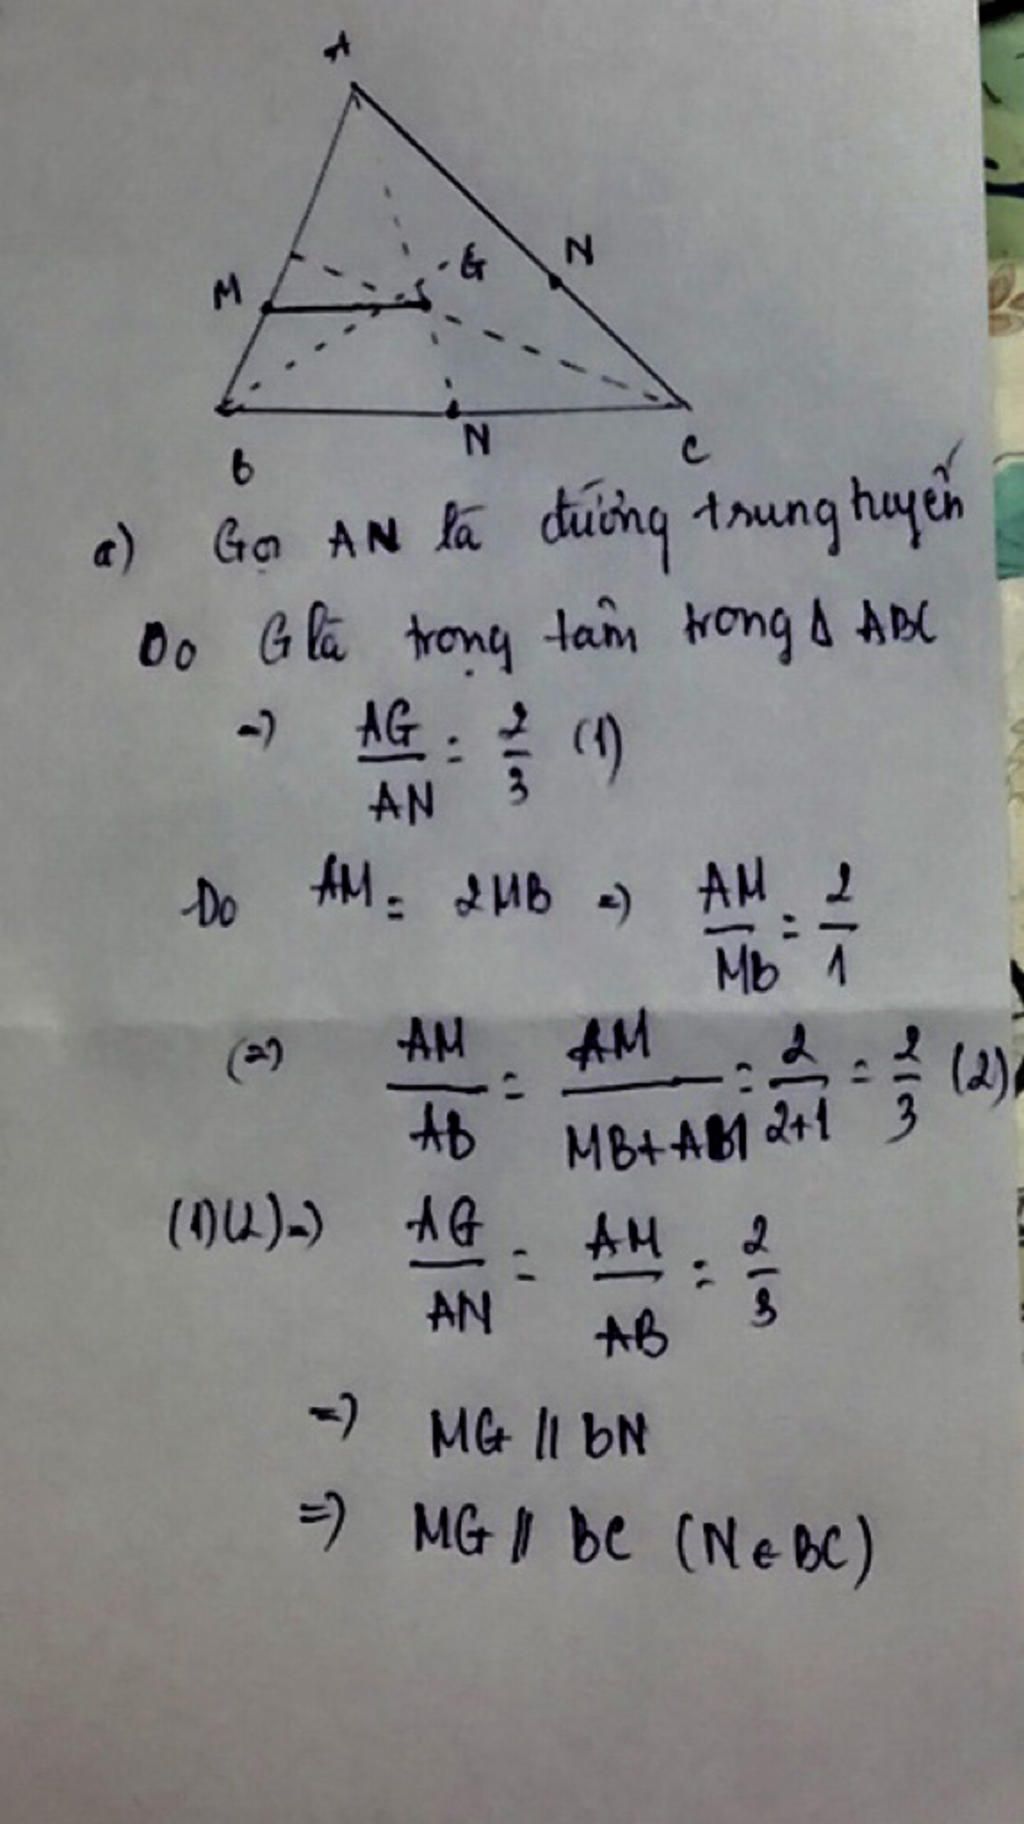 A
M
G
N
B
N
C
a) Gọi AN là đường trung tuyến
Do G là trọng tâm trong Δ ABC
=> AG/AN = 2/3 (1)
Do AM = 2MB => AM/MB = 2/1
(=) AM/AB = AM/(MB+AM) = 2/(2+1) = 2/3 (2)
(1)(2) => AG/AN = AM/AB = 2/3
=> MG // BN
=> MG // BC (N ∈ BC)